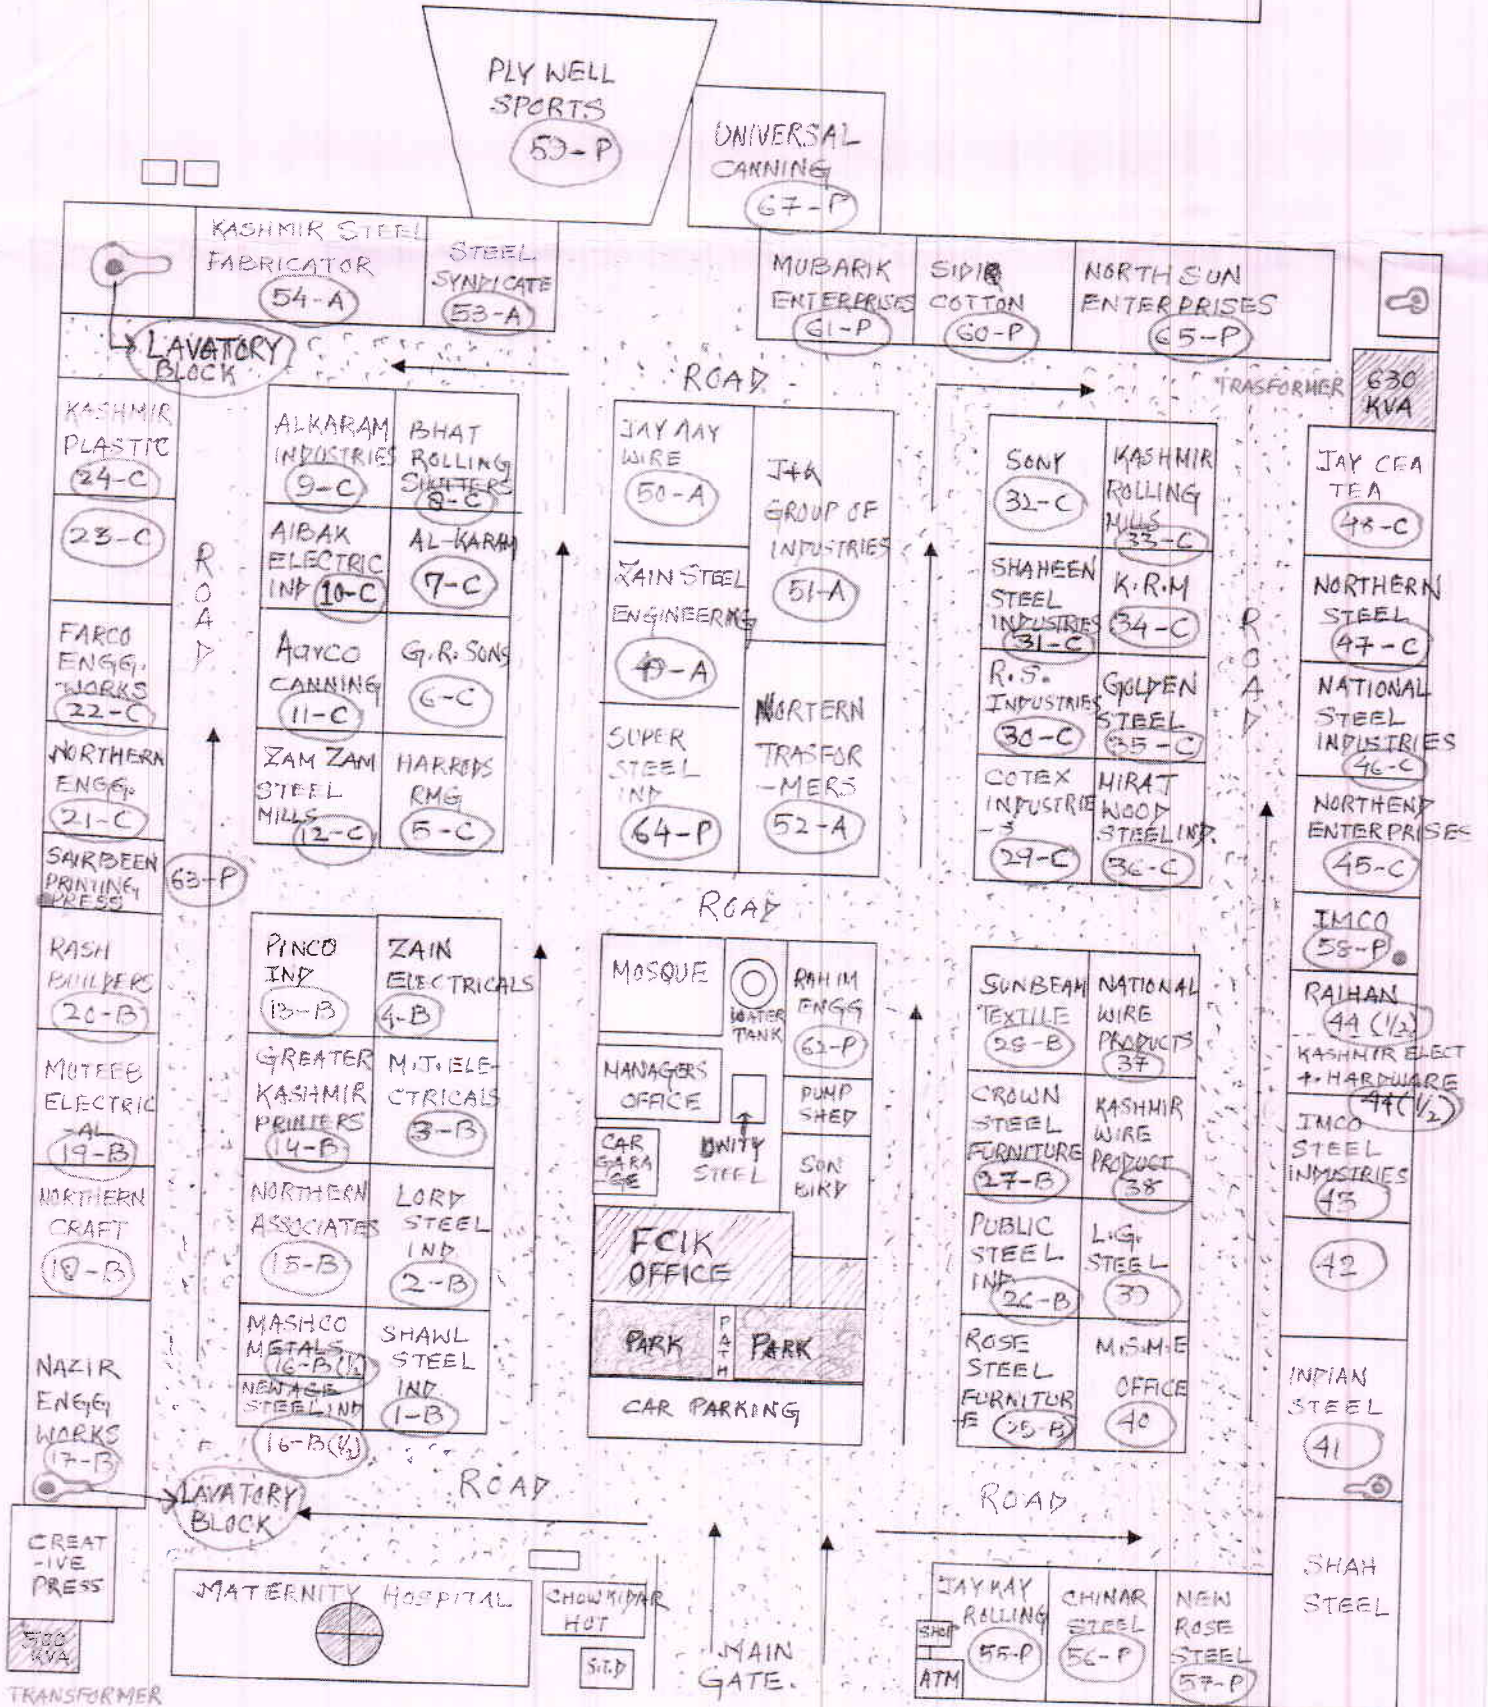 PLY WELL
SPORTS
59-P
UNIVERSAL
CANNING
67-P
KASHMIR STEEL
FABRICATOR
54-A
STEEL
SYNDICATE
53-A
MUBARIK
ENTERPRISES
61-P
SIDIQ
COTTON
60-P
NORTH SUN
ENTERPRISES
65-P
LAVATORY
BLOCK
ROAD
TRASFORMER
630
KVA
KASHMIR
PLASTIC
24-C
23-C
FARCO
ENGG.
WORKS
22-C
NORTHERN
ENGG.
21-C
SAIRBEEN
PRINTING
PRESS
63-P
ROAD
ALKARAM
INDUSTRIES
9-C
BHAT
ROLLING
SHUTTERS
8-C
AIBAK
ELECTRIC
IND 10-C
AL-KARAM
7-C
Aarco
CANNING
11-C
G.R. SONS
6-C
ZAM ZAM
STEEL
MILLS
12-C
HARRODS
RMG
5-C
JAY AAY
WIRE
50-A
J+K
GROUP OF
INDUSTRIES
51-A
ZAIN STEEL
ENGINEERING
49-A
SUPER
STEEL
IND
64-P
NORTERN
TRASFOR
-MERS
52-A
SONY
32-C
KASHMIR
ROLLING
MILLS
33-C
SHAHEEN
STEEL
INDUSTRIES
31-C
K.R.M
34-C
R.S.
INDUSTRIES
30-C
GOLDEN
STEEL
35-C
COTEX
INDUSTRIE
-S
29-C
MIRAJ
WOOD
STEEL IND.
36-C
ROAD
JAY CEA
TEA
48-C
NORTHERN
STEEL
47-C
NATIONAL
STEEL
INDUSTRIES
46-C
NORTHEND
ENTERPRISES
45-C
ROAD
IMCO
58-P
RAIHAN
44 (1/2)
KASHMIR ELECT
+ HARDWARE
44 (1/2)
IMCO
STEEL
INDUSTRIES
43
42
INDIAN
STEEL
41
SHAH
STEEL
RASH
BUILDERS
20-B
MUTEEB
ELECTRIC
-AL
19-B
NORTHERN
CRAFT
18-B
NAZIR
ENGG
WORKS
17-B
PINCO
IND
13-B
ZAIN
ELECTRICALS
4-B
GREATER
KASHMIR
PRINTERS
14-B
M.J. ELE-
CTRICALS
3-B
NORTHERN
ASSOCIATES
15-B
LORD
STEEL
IND
2-B
MASHCO
METALS
16-B (1/2)
NEW AGE
STEEL IND
16-B (1/2)
SHAWL
STEEL
IND
1-B
MOSQUE
WATER
TANK
RAHIM
ENGG
62-P
MANAGERS
OFFICE
PUMP
SHED
CAR
GARA
GE
UNITY
STEEL
SUN
BIRD
FCIK
OFFICE
PARK
PATH
PARK
CAR PARKING
SUNBEAM
TEXTILE
28-B
NATIONAL
WIRE
PRODUCTS
37
CROWN
STEEL
FURNITURE
27-B
KASHMIR
WIRE
PRODUCT
38
PUBLIC
STEEL
IND
26-B
L.G.
STEEL
39
ROSE
STEEL
FURNITUR
E
25-B
M.S.M.E
OFFICE
40
ROAD
ROAD
LAVATORY
BLOCK
CREAT
-IVE
PRESS
500
KVA
TRANSFORMER
MATERNITY HOSPITAL
CHOWKIDAR
HUT
S.T.D
MAIN
GATE.
SHOP
ATM
JAY KAY
ROLLING
55-P
CHINAR
STEEL
56-P
NEW
ROSE
STEEL
57-P